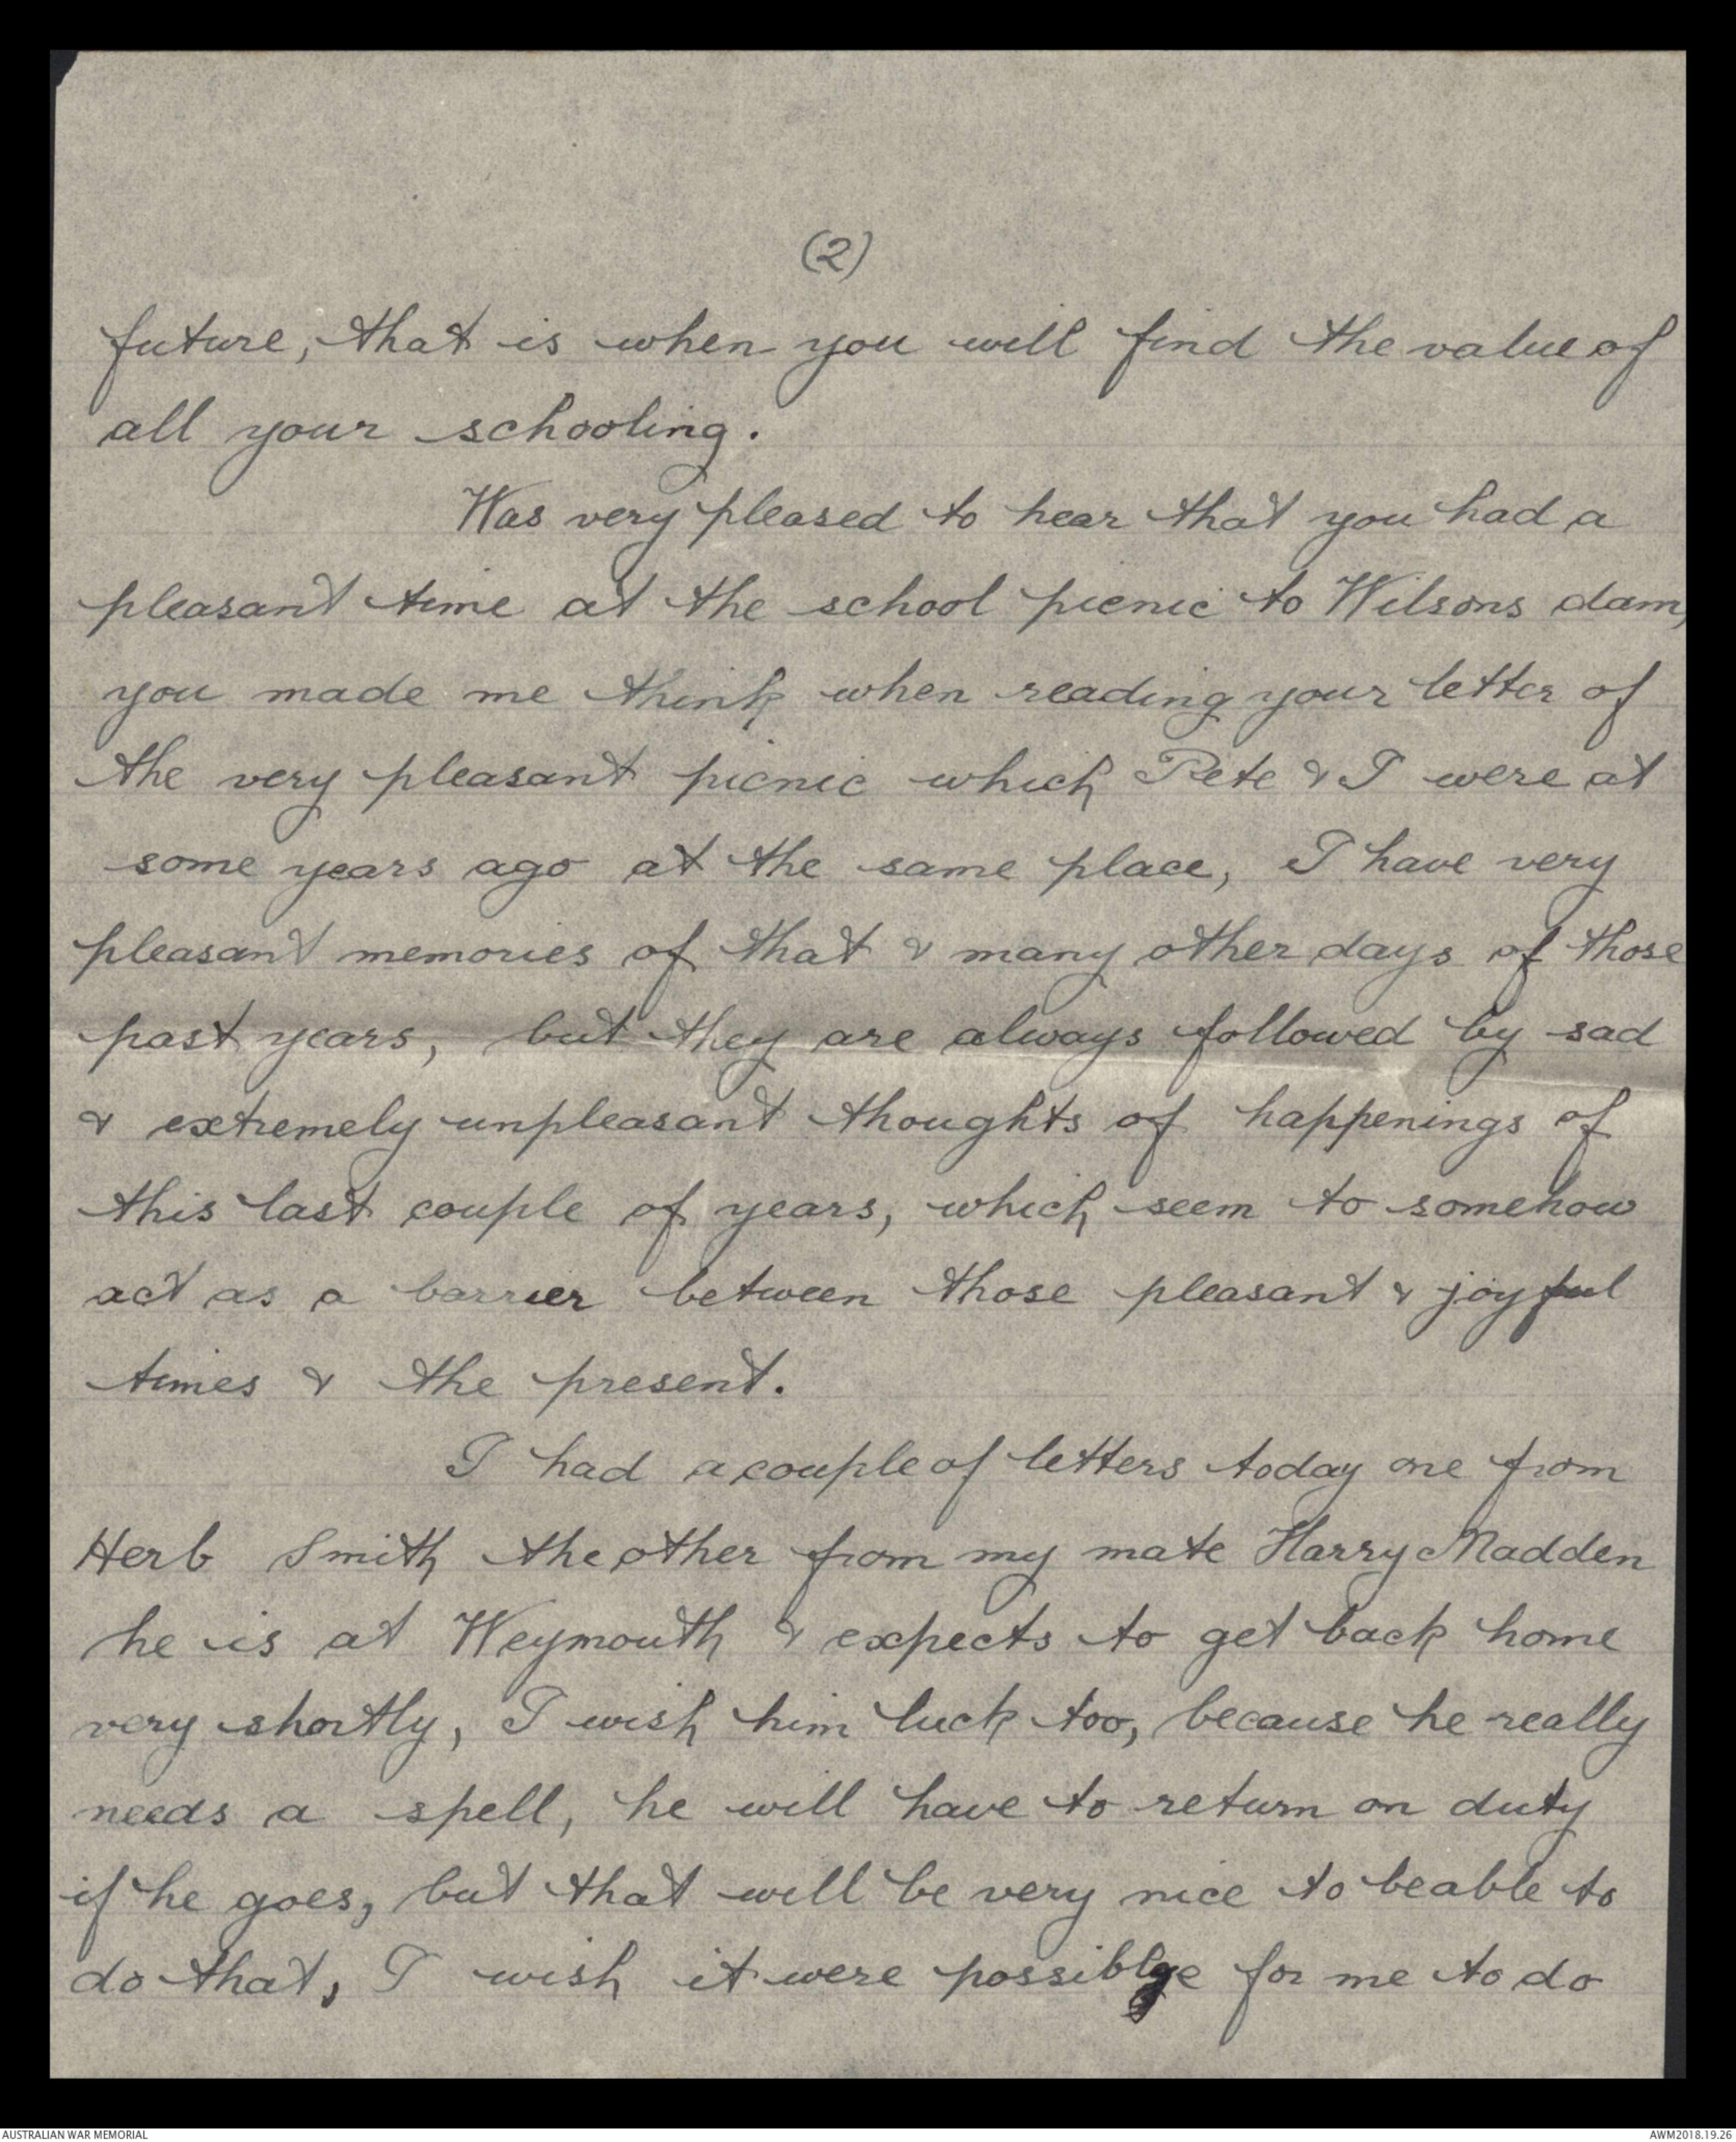 (2)
future, that is when you will find the value of
all your schooling.
Was very pleased to hear that you had a
pleasant time at the school picnic to Wilsons dam,
you made me think when reading your letter of
the very pleasant picnic which Pete & I were at
some years ago at the same place, I have very
pleasant memories of that & many other days of those
past years, but they are always followed by sad
& extremely unpleasant thoughts of happenings of
this last couple of years, which seem to somehow
act as a barrier between those pleasant & joyful
times & the present.
I had a couple of letters today one from
Herb Smith the other from my mate Harry Madden
he is at Weymouth & expects to get back home
very shortly, I wish him luck too, because he really
needs a spell, he will have to return on duty
if he goes, but that will be very nice to beable to
do that, I wish it were possible for me to do
AUSTRALIAN WAR MEMORIAL
AWM2018.19.26